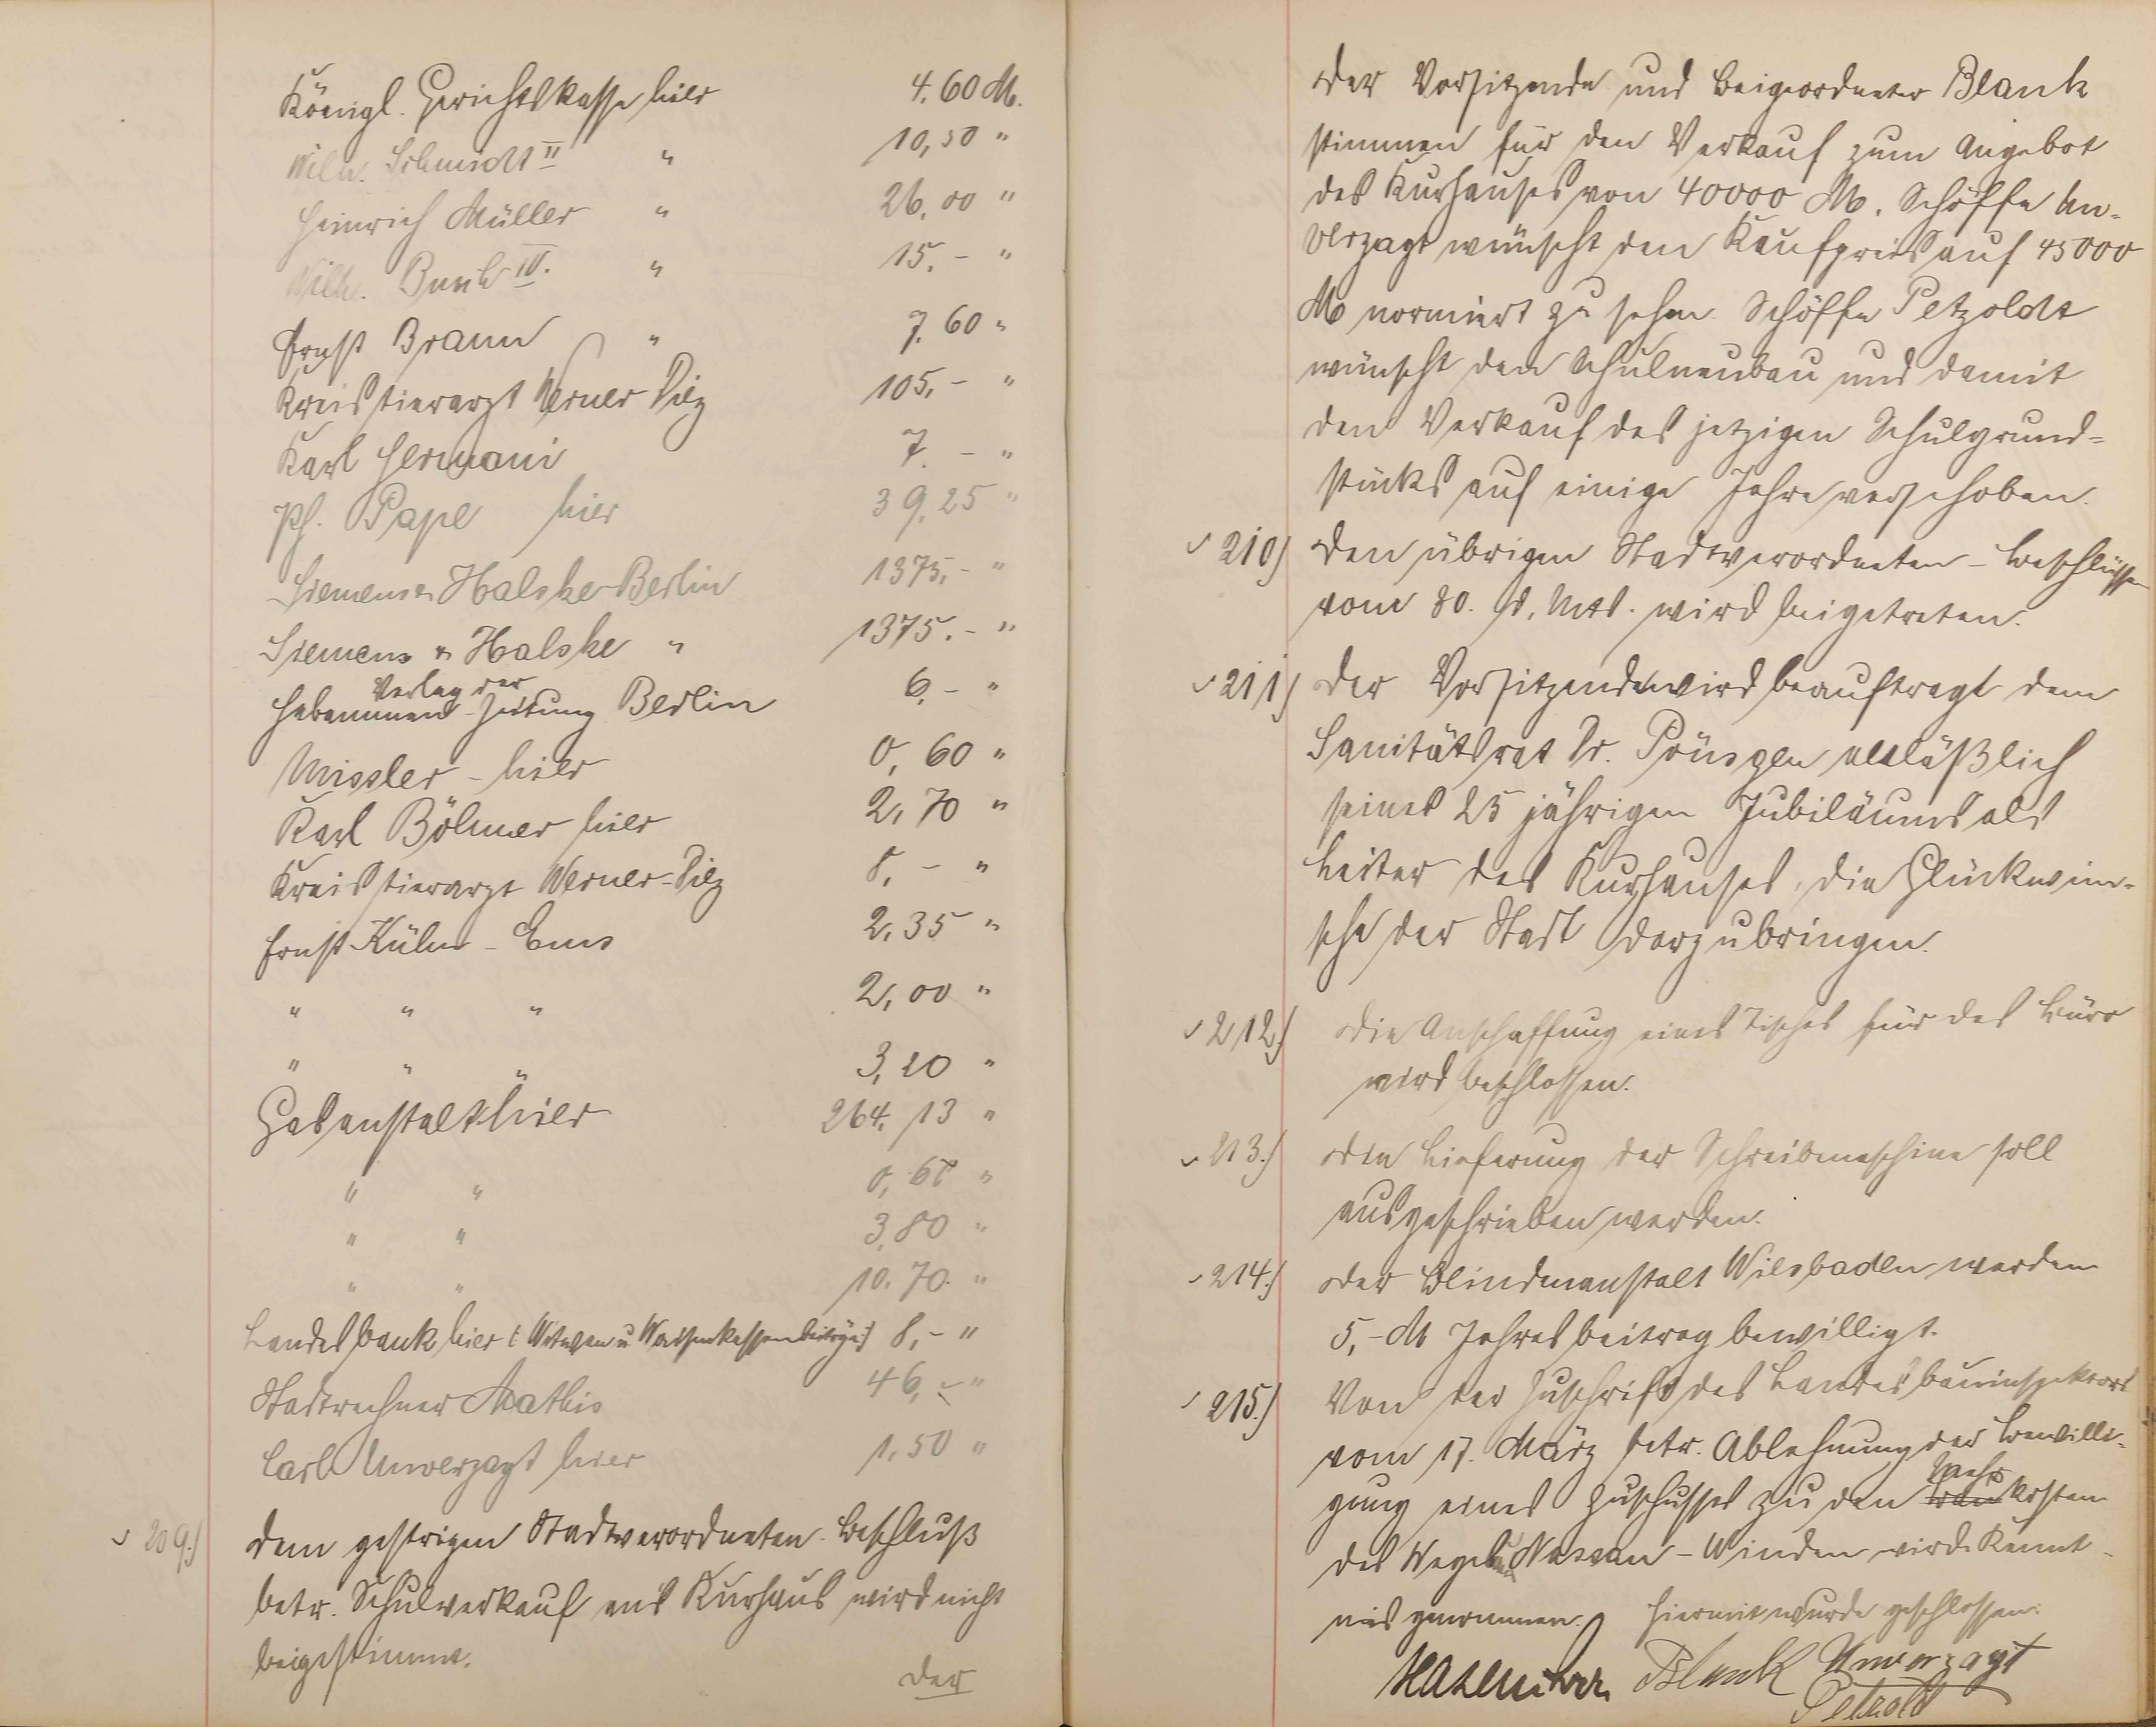 Königl. Gerichtskasse hier 4.60 M.
Wilh. Schmidt II " 10,50 "
Heinrich Müller " 26,00 "
Wilh. Buch IV. " 15.- "
Ernst Braun " 7.60 "
Kreistierarzt Werner Diez 105,- "
Karl Hermani 7.- "
Ph. Pape hier 39,25 "
Siemens & Halske Berlin 1375,- "
Siemens & Halske " 1375.- "
Verlag der
Hebammen-Zeitung Berlin 6,- "
Missler - hier 0,60 "
Karl Böhmer hier 2,70 "
Kreistierarzt Werner-Diez 8,- "
Ernst Kühn - Ems 2,35 "
" " " 2,00 "
" " " 3,20 "
Gasanstalt hier 264,13 "
" " 0,68 "
" " 3,80 "
" " 10.70 "
Landesbank hier (: Witwen u Waisenkassenbeiträge :) 8,- "
Stadtrechner Mathis 46,- "
Carl Unverzagt hier 1,50 "
209.) Dem gestrigen Stadtverordneten-Beschluß
betr. Schulverkauf ans Kurhaus wird nicht
beigestimmt.
Der
Der Vorsitzende und Beigeordneter Blank
stimmen für den Verkauf zum Angebot
des Kurhauses von 40000 M. Schöffe Un-
verzagt wünscht den Kaufpreis auf 45000
M normiert zu sehen. Schöffe Petzoldt
wünscht den Schulneubau und damit
den Verkauf des jetzigen Schulgrund-
stücks auf einige Jahre verschoben.
210) Den übrigen Stadtverordneten-Beschlüssen
vom 30. d. Mts. wird beigetreten.
211) Der Vorsitzende wird beauftragt dem
Sanitätsrat Dr. Poensgen anläßlich
seines 25 jährigen Jubiläums als
Leiter des Kurhauses, die Glückwün-
sche der Stadt darzubringen.
212.) Die Anschaffung eines Tisches für das Büro
wird beschlossen.
213.) Die Lieferung der Schreibmaschine soll
ausgeschrieben werden.
214.) Der Blindenanstalt Wiesbaden werden
5,- M Jahresbeitrag bewilligt.
215.) Von der Zuschrift des Landesbauinspektors
vom 17. März betr. Ablehnung der Bewilli-
gung eines Zuschusses zu den Bau Mehrkosten
des Weges Nassau - Winden wird Kennt-
nis genommen. Hiermit wurde geschlossen.
Hasenclever Blank Unverzagt
Petzoldt